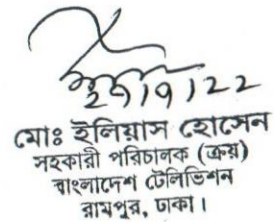 মোঃ ইলিয়াস হোসেন
সহকারী পরিচালক (ক্রয়)
বাংলাদেশ টেলিভিশন
রামপুর, ঢাকা।